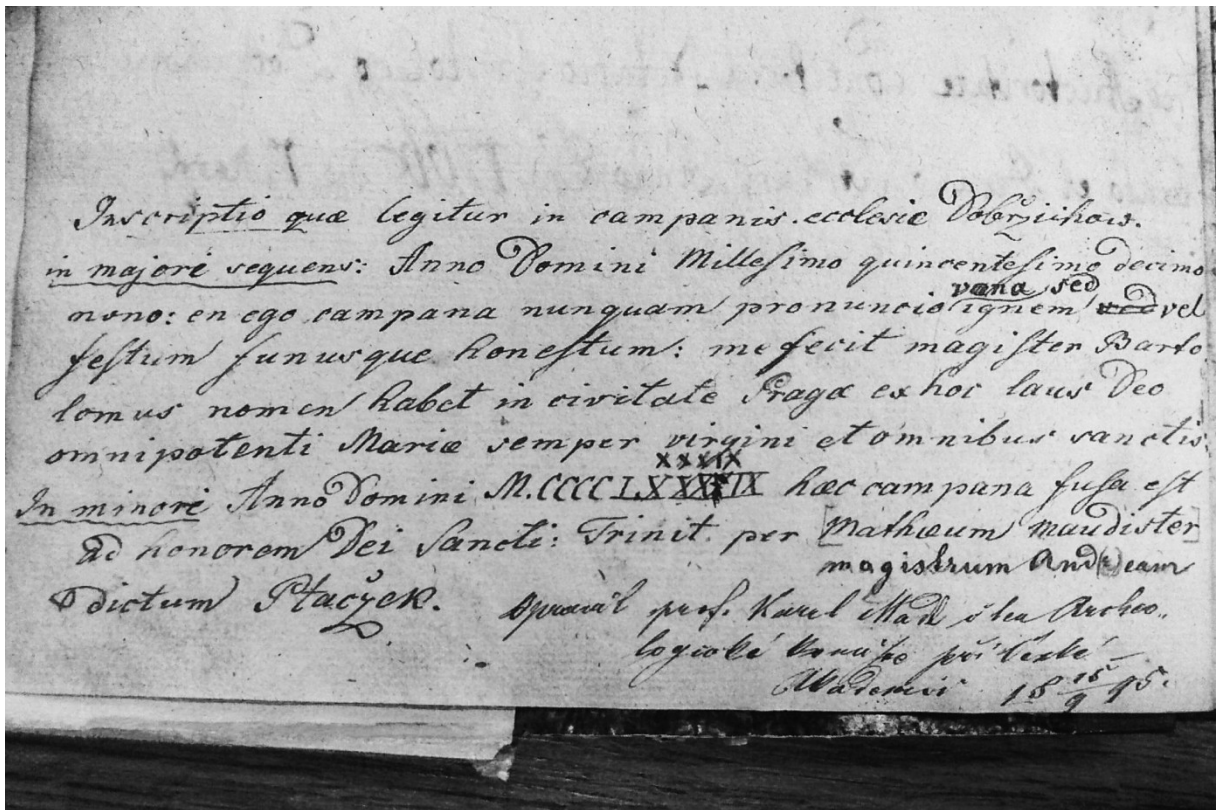 Inscriptio quæ legitur in campanis ecclesiæ Dobržichow.
in majore sequens: Anno Domini Millesimo quincentesimo decimo
vana sed
nono: en ego campana nunquam pronuncio ignem vel
festum funusque honestum: me fecit magister Barto
lomus nomen habet in civitate Praga ex hoc laus Deo
omnipotenti Mariæ semper virgini et omnibus sanctis.
XXXIX
In minore Anno Domini M.CCCC LXXXIX hæc campana fusa est
ad honorem Dei Sancti: Trinit. per [Mathæum Maudister]
magistrum And(r)eam
dictum Ptaczek.
Opravil prof. Karel Mádl člen Archeo-
logické komisse při České
Akademii 18 15/9 95.